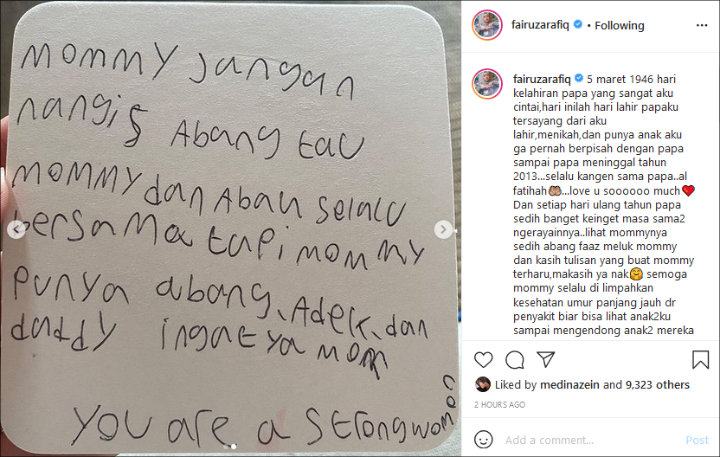 mommy jangan
nangis Abang tau
mommy dan Abah selalu
bersama tapi mommy
punya abang, Adek, dan
daddy ingat ya mom
you are a strong woman
fairuzarafiq • Following
fairuzarafiq 5 maret 1946 hari
kelahiran papa yang sangat aku
cintai,hari inilah hari lahir papaku
tersayang dari aku
lahir,menikah,dan punya anak aku
ga pernah berpisah dengan papa
sampai papa meninggal tahun
2013...selalu kangen sama papa..al
fatihah🤲🏼...love u soooooo much❤️
Dan setiap hari ulang tahun papa
sedih banget keinget masa sama2
ngerayainnya..lihat mommynya
sedih abang faaz meluk mommy
dan kasih tulisan yang buat mommy
terharu,makasih ya nak🤗 semoga
mommy selalu di limpahkan
kesehatan umur panjang jauh dr
penyakit biar bisa lihat anak2ku
sampai mengendong anak2 mereka
Liked by medinazein and 9,323 others
2 HOURS AGO
Add a comment...
Post